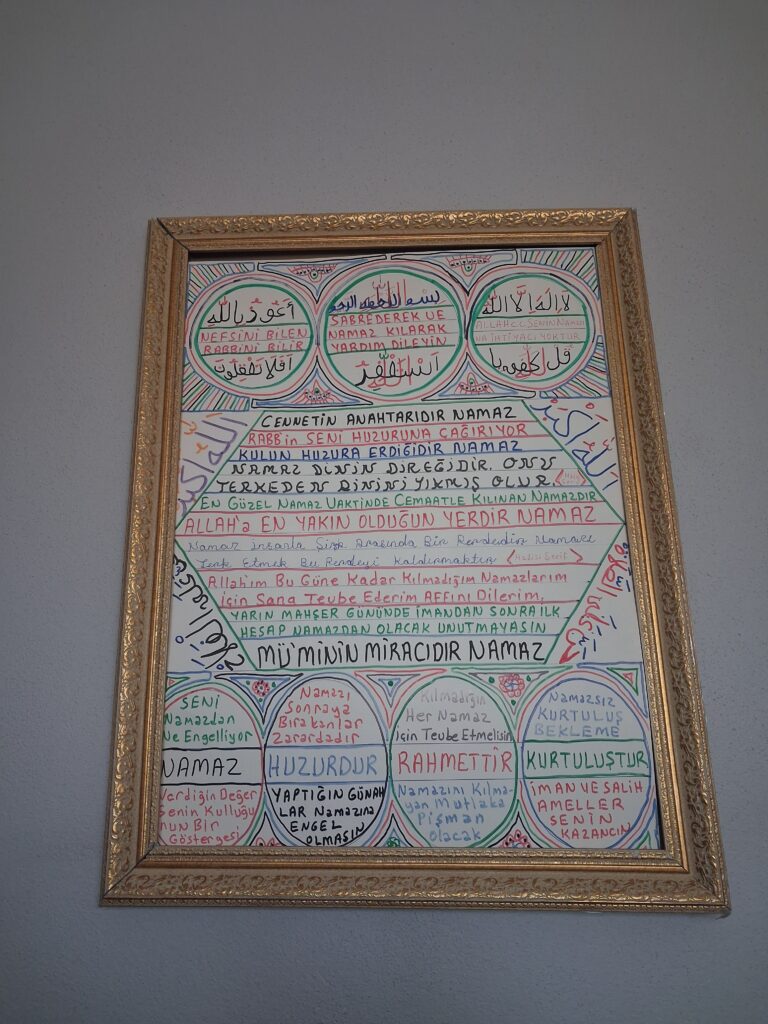 أعوذ بالله
NEFSİNİ BİLEN
RABBİNİ BİLİR
أفلا تعقلون
بسم الله
SABREDEREK VE
NAMAZ KILARAK
YARDIM DİLEYİN
الله
لا اله الا الله
ALLAH C.C SENİN NAMAZI
NA İHTİYACI YOKTUR
الله اكبر
الله اكبر
CENNETİN ANAHTARIDIR NAMAZ
RABB'in SENİ HUZURUNA ÇAĞIRIYOR
KULUN HUZURA ERDİĞİDİR NAMAZ
NAMAZ DİNİN DİREĞİDİR. ONU
TERKEDEN DİNİNİ YIKMIŞ OLUR.
EN GÜZEL NAMAZ VAKTİNDE CEMAATLE KILINAN NAMAZDIR
ALLAH'a EN YAKIN OLDUĞUN YERDİR NAMAZ
Namaz İnsanla Şirk Arasında Bir Perdedir Namazı
Terk Etmek Bu Perdeyi Kaldırmaktır Hadisi Şerif
Allah'ım Bu Güne Kadar Kılmadığım Namazlarım
İçin Sana Tevbe Ederim Affını Dilerim.
YARIN MAHŞER GÜNÜNDE İMANDAN SONRA İLK
HESAP NAMAZDAN OLACAK UNUTMAYASIN
MÜ'MİNİN MİRACIDIR NAMAZ
SENİ
Namazdan
Ne Engelliyor
NAMAZ
Verdiğin Değer
Senin Kulluğu
nun Bir
Göstergesi
Namazı
Sonraya
Bırakanlar
Zarardadır
HUZURDUR
YAPTIĞIN GÜNAH
LAR Namazına
ENGEL
OLMASIN
Kılmadığın
Her Namaz
İçin Tevbe Etmelisin
RAHMETTİR
Namazını Kılma-
yan Mutlaka
Pişman
Olacak
Namazsız
KURTULUŞ
BEKLEME
KURTULUŞTUR
İMAN VE SALİH
AMELLER
SENİN
KAZANCIN